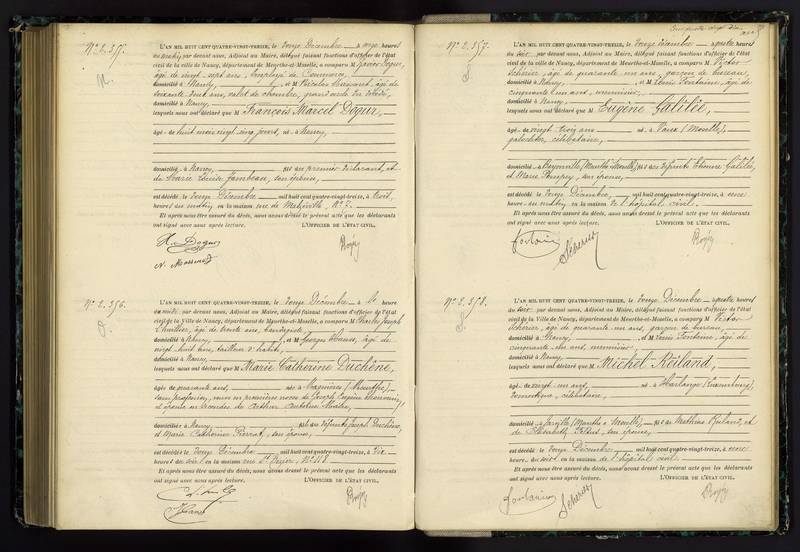 N° 2.355.
L'AN MIL HUIT CENT QUATRE-VINGT-TREIZE, le douze Décembre à onze heures
du matin par devant nous, Adjoint au Maire, délégué faisant fonctions d'officier de l'état
civil de la ville de Nancy, département de Meurthe-et-Moselle, a comparu M.
âgé de vingt-sept ans, employé de Commerce,
domicilié à Nancy, et M Nicolas âgé de
soixante-huit ans, valet de chambre, grand oncle du décédé,
domicilié à Nancy,
lesquels nous ont déclaré que M François Marcel Dogur,
âgé de huit mois vingt cinq jours, né à Nancy,
domicilié à Nancy, fils du premier déclarant, et
de Marie Lucie Jambeau, son épouse,
est décédé le douze Décembre mil huit cent quatre-vingt-treize, à trois
heures du matin, en la maison rue de Malzéville, N° 7.
Et après nous être assuré du décès, nous avons dressé le présent acte que les déclarants
ont signé avec nous après lecture. L'OFFICIER DE L'ÉTAT CIVIL,
N° 2.356.
L'AN MIL HUIT CENT QUATRE-VINGT-TREIZE, le douze Décembre à heure
par devant nous, Adjoint au Maire, délégué faisant fonctions d'officier de l'état
civil de la Ville de Nancy, département de Meurthe-et-Moselle, a comparu M. Charles Joseph
Lhuillier, âgé de trente ans, bandagiste,
domicilié à Nancy, et M Georges Hans, âgé de
vingt huit ans, tailleur d'habits,
domicilié à Nancy,
lesquels nous ont déclaré que M Marie Catherine Duchêne,
âgée de quarante ans, née à Magnières (Meurthe),
sans profession, veuve en premières noces de Joseph Eugène
et épouse en secondes de Arthur Antoine
domiciliée à Nancy, fille de défunts Joseph Duchêne,
et Marie Catherine Pierrat, son épouse,
est décédée le douze Décembre mil huit cent quatre-vingt-treize, à dix
heures du soir en la maison rue St Dizier, N° 118.
Et après nous être assuré du décès, nous avons dressé le présent acte que les déclarants
ont signé avec nous après lecture. L'OFFICIER DE L'ÉTAT CIVIL,
N° 2.357.
L'AN MIL HUIT CENT QUATRE-VINGT-TREIZE, le douze Décembre à quatre heures
du soir, par devant nous, Adjoint au Maire, délégué faisant fonctions d'officier de l'état
civil de la ville de Nancy, département de Meurthe-et-Moselle, a comparu M. Victor
Schérier, âgé de quarante-un ans, garçon de bureau,
domicilié à Nancy, et M Louis Fontaine, âgé de
cinquante un ans, menuisier,
domicilié à Nancy,
lesquels nous ont déclaré que M Eugène Galilée,
âgé de vingt trois ans né à Vaux (Moselle),
galochier, célibataire,
domicilié à (Meurthe & Moselle), fils des défunts Etienne Galilée,
et Marie Pompey, son épouse,
est décédé le douze Décembre, mil huit cent quatre-vingt-treize, à onze
heures du matin, en la maison de l'hôpital civil.
Et après nous être assuré du décès, nous avons dressé le présent acte que les déclarants
ont signé avec nous après lecture. L'OFFICIER DE L'ÉTAT CIVIL,
Fontaine
Schérier
N° 2.358.
L'AN MIL HUIT CENT QUATRE-VINGT-TREIZE, le douze Décembre à quatre heures
du soir par devant nous, Adjoint au Maire, délégué faisant fonctions d'officier de l'état
civil de la Ville de Nancy, département de Meurthe-et-Moselle, a comparu M. Victor
Schérier, âgé de quarante un ans, garçon de bureau,
domicilié à Nancy, et M Louis Fontaine, âgé de
cinquante un ans, menuisier,
domicilié à Nancy,
lesquels nous ont déclaré que M Michel Reiland,
âgé de vingt un ans, né à Harlange (Luxembourg),
domestique, célibataire,
domicilié à Jarville (Meurthe & Moselle), fils de Mathias Reiland, et
de Elisabeth son épouse,
est décédé le douze Décembre mil huit cent quatre-vingt-treize, à onze
heures du soir en la maison de l'hôpital civil.
Et après nous être assuré du décès, nous avons dressé le présent acte que les déclarants
ont signé avec nous après lecture. L'OFFICIER DE L'ÉTAT CIVIL,
Fontaine
Schérier